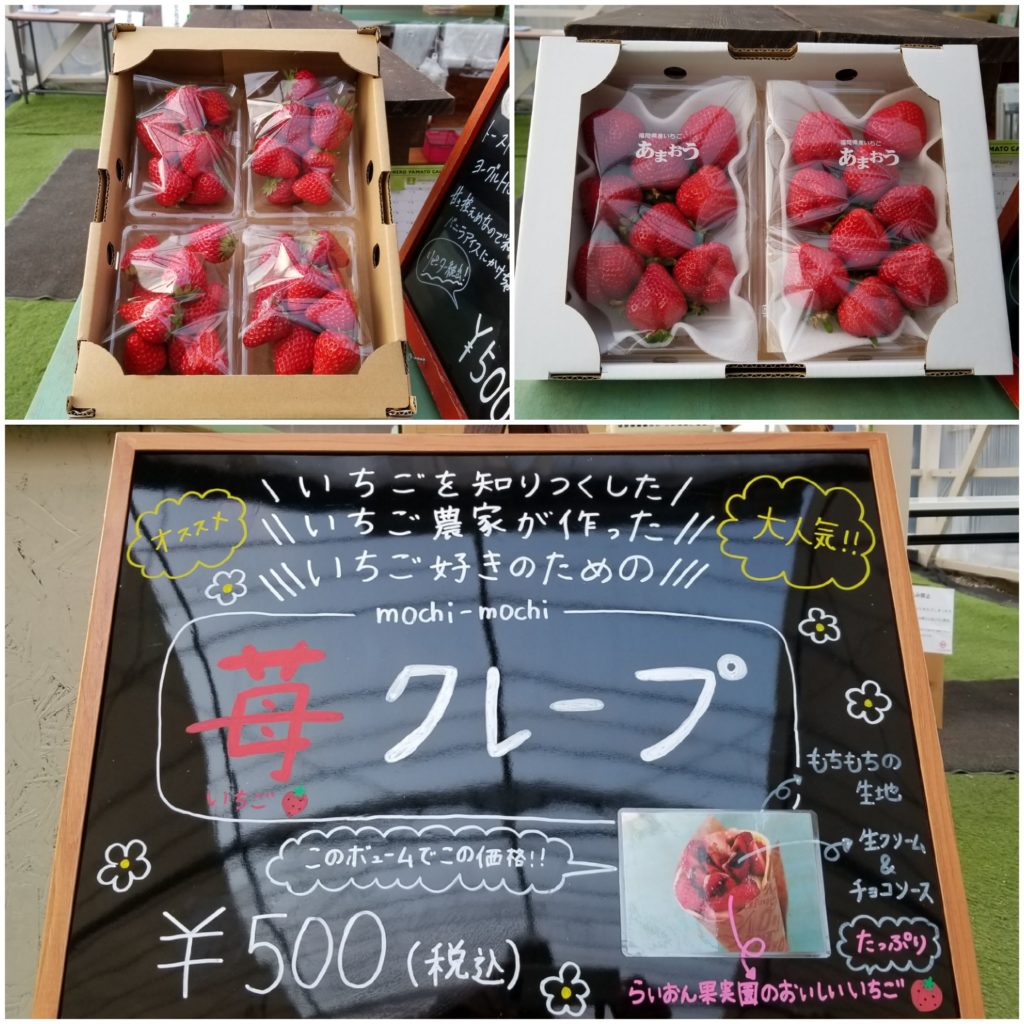 トースト
ヨーグルト
甘さ控えめなので
バニラアイスにかけ
リピーター続出!
¥500
福岡県産いちご
あまおう
福岡県産いちご
あまおう
オススメ
いちごを知りつくした
いちご農家が作った
いちご好きのための
大人気!!
mochi-mochi
苺クレープ
いちご
もちもちの
生地
このボュームでこの価格!!
生クリーム
&
チョコソース
¥500(税込)
たっぷり
らいおん果実園のおいしいいちご